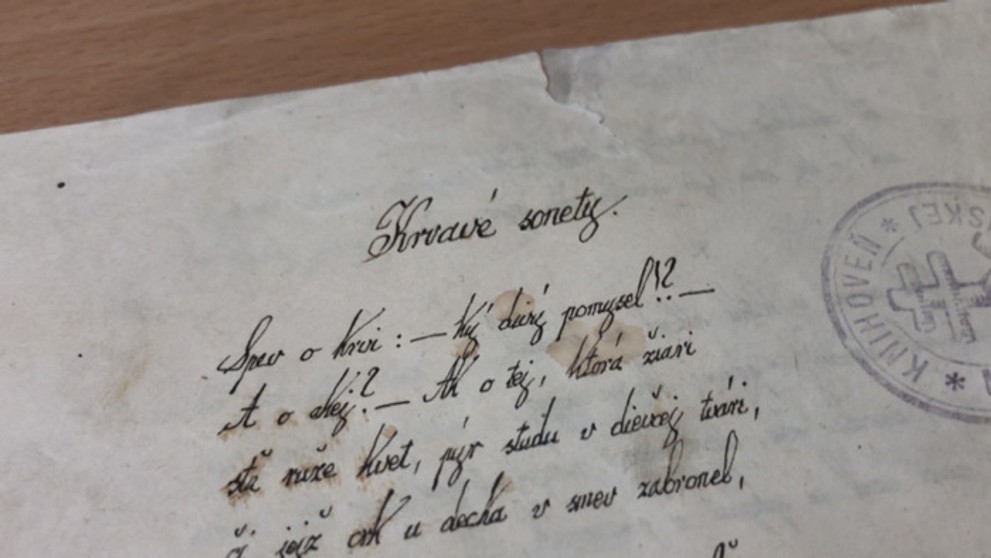 Krvavé sonety.
Spev o krvi: — ký divý pomysel!? —
A o akej? — Ak o tej, ktorá žiari
stä ruže kvet, pýr studu v dievčej tvári,
či jejž cvk u decka v smev zabronel,
* KNIHOVEŇ * SKEJ